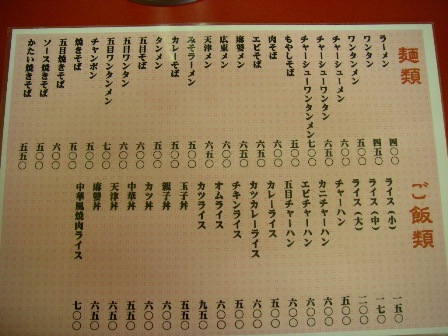 麺類
ラーメン 四〇〇
ワンタン 四五〇
ワンタンメン 五〇〇
チャーシューメン 六五〇
チャーシューワンタンメン 七〇〇
もやしそば 五〇〇
肉そば 六〇〇
エビそば 六五〇
麻婆メン 六〇〇
広東メン 六〇〇
天津メン 六五〇
みそラーメン 五〇〇
カレーそば 五〇〇
タンメン 五〇〇
五目そば 六〇〇
五目ワンタン 六〇〇
五目ワンタンメン 七〇〇
チャンポン 六〇〇
焼きそば 五〇〇
五目焼きそば 六〇〇
ソース焼きそば 五〇〇
かたい焼きそば 五五〇
ご飯類
ライス（小） 一五〇
ライス（中） 一七〇
ライス（大） 二〇〇
チャーハン 五〇〇
カニチャーハン 六〇〇
エビチャーハン 六〇〇
五目チャーハン 六〇〇
カレーライス 五〇〇
カツカレーライス
チキンライス 五〇〇
オムライス 六五〇
カツライス 九五〇
玉子丼 五五〇
親子丼 六〇〇
カツ丼 六〇〇
中華丼 五五〇
天津丼 五五〇
麻婆丼 六五〇
中華風焼肉ライス 七〇〇